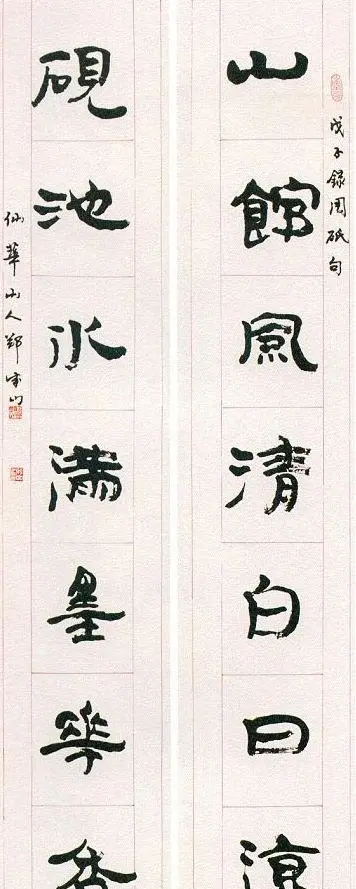 戊子録周砥句
山館風清白日涼
硯池水滿墨華香
仙華山人鄭